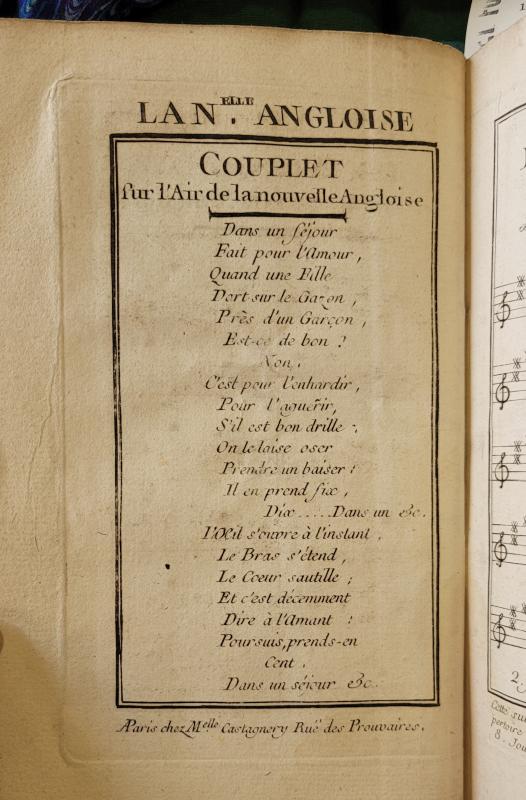 LA N.ELLE ANGLOISE
COUPLET
sur l'Air de la nouvelle Angloise
Dans un séjour
Fait pour l'Amour,
Quand une Fille
Dort sur le Gazon,
Près d'un Garçon,
Est-ce de bon ?
Non.
C'est pour l'enhardir,
Pour l'aguerir,
S'il est bon drille ;
On le laise oser
Prendre un baiser :
Il en prend six,
Dix.....Dans un &c.
L'Œil s'ouvre à l'instant,
Le Bras s'étend,
Le Cœur sautille ;
Et c'est décemment
Dire à l'Amant :
Poursuis, prends-en
Cent.
Dans un séjour &c.
A Paris chez M.elle Castagnery Rue des Prouvaires.
2.
8. Jou